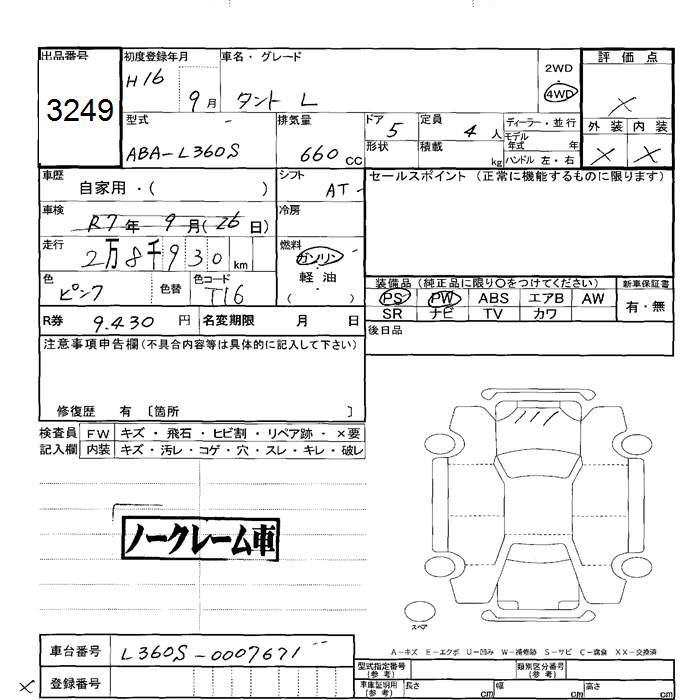 出品番号 3249
初度登録年月 H16 9月
車名・グレード タント L
2WD ・ 4WD
評価点 ×
外装 × 内装 ×
型式 ABA-L360S
排気量 660 CC
ドア 5
形状
定員 4 人
積載 kg
ディーラー・並行
モデル年式 年
ハンドル 左・右
車歴 自家用・( )
シフト AT
セールスポイント (正常に機能するものに限ります)
車検 R7年 9月(26日)
冷房
走行 2万8千930 km
燃料 ガソリン・軽油 ( )
色 ピンク 色替 色コード T16
装備品(純正品に限り○をつけてください) 新車保証書
PS PW ABS エアB AW 有・無
SR ナビ TV カワ
R券 9.430 円 名変期限 月 日
後日品
注意事項申告欄(不具合内容等は具体的に記入して下さい)
修復歴 有 〔箇所 〕
検査員 FW キズ・飛石・ヒビ割・リペア跡・×要
記入欄 内装 キズ・汚レ・コゲ・穴・スレ・キレ・破レ
ノークレーム車
スペア
A-キズ E-エクボ U-凹み W-補修跡 S-サビ C-腐食 XX-交換済
車台番号 L360S-0007671
登録番号
×
型式指定番号(参考) 類別区分番号(参考)
車庫証明用(参考) 長さ cm 幅 cm 高さ cm